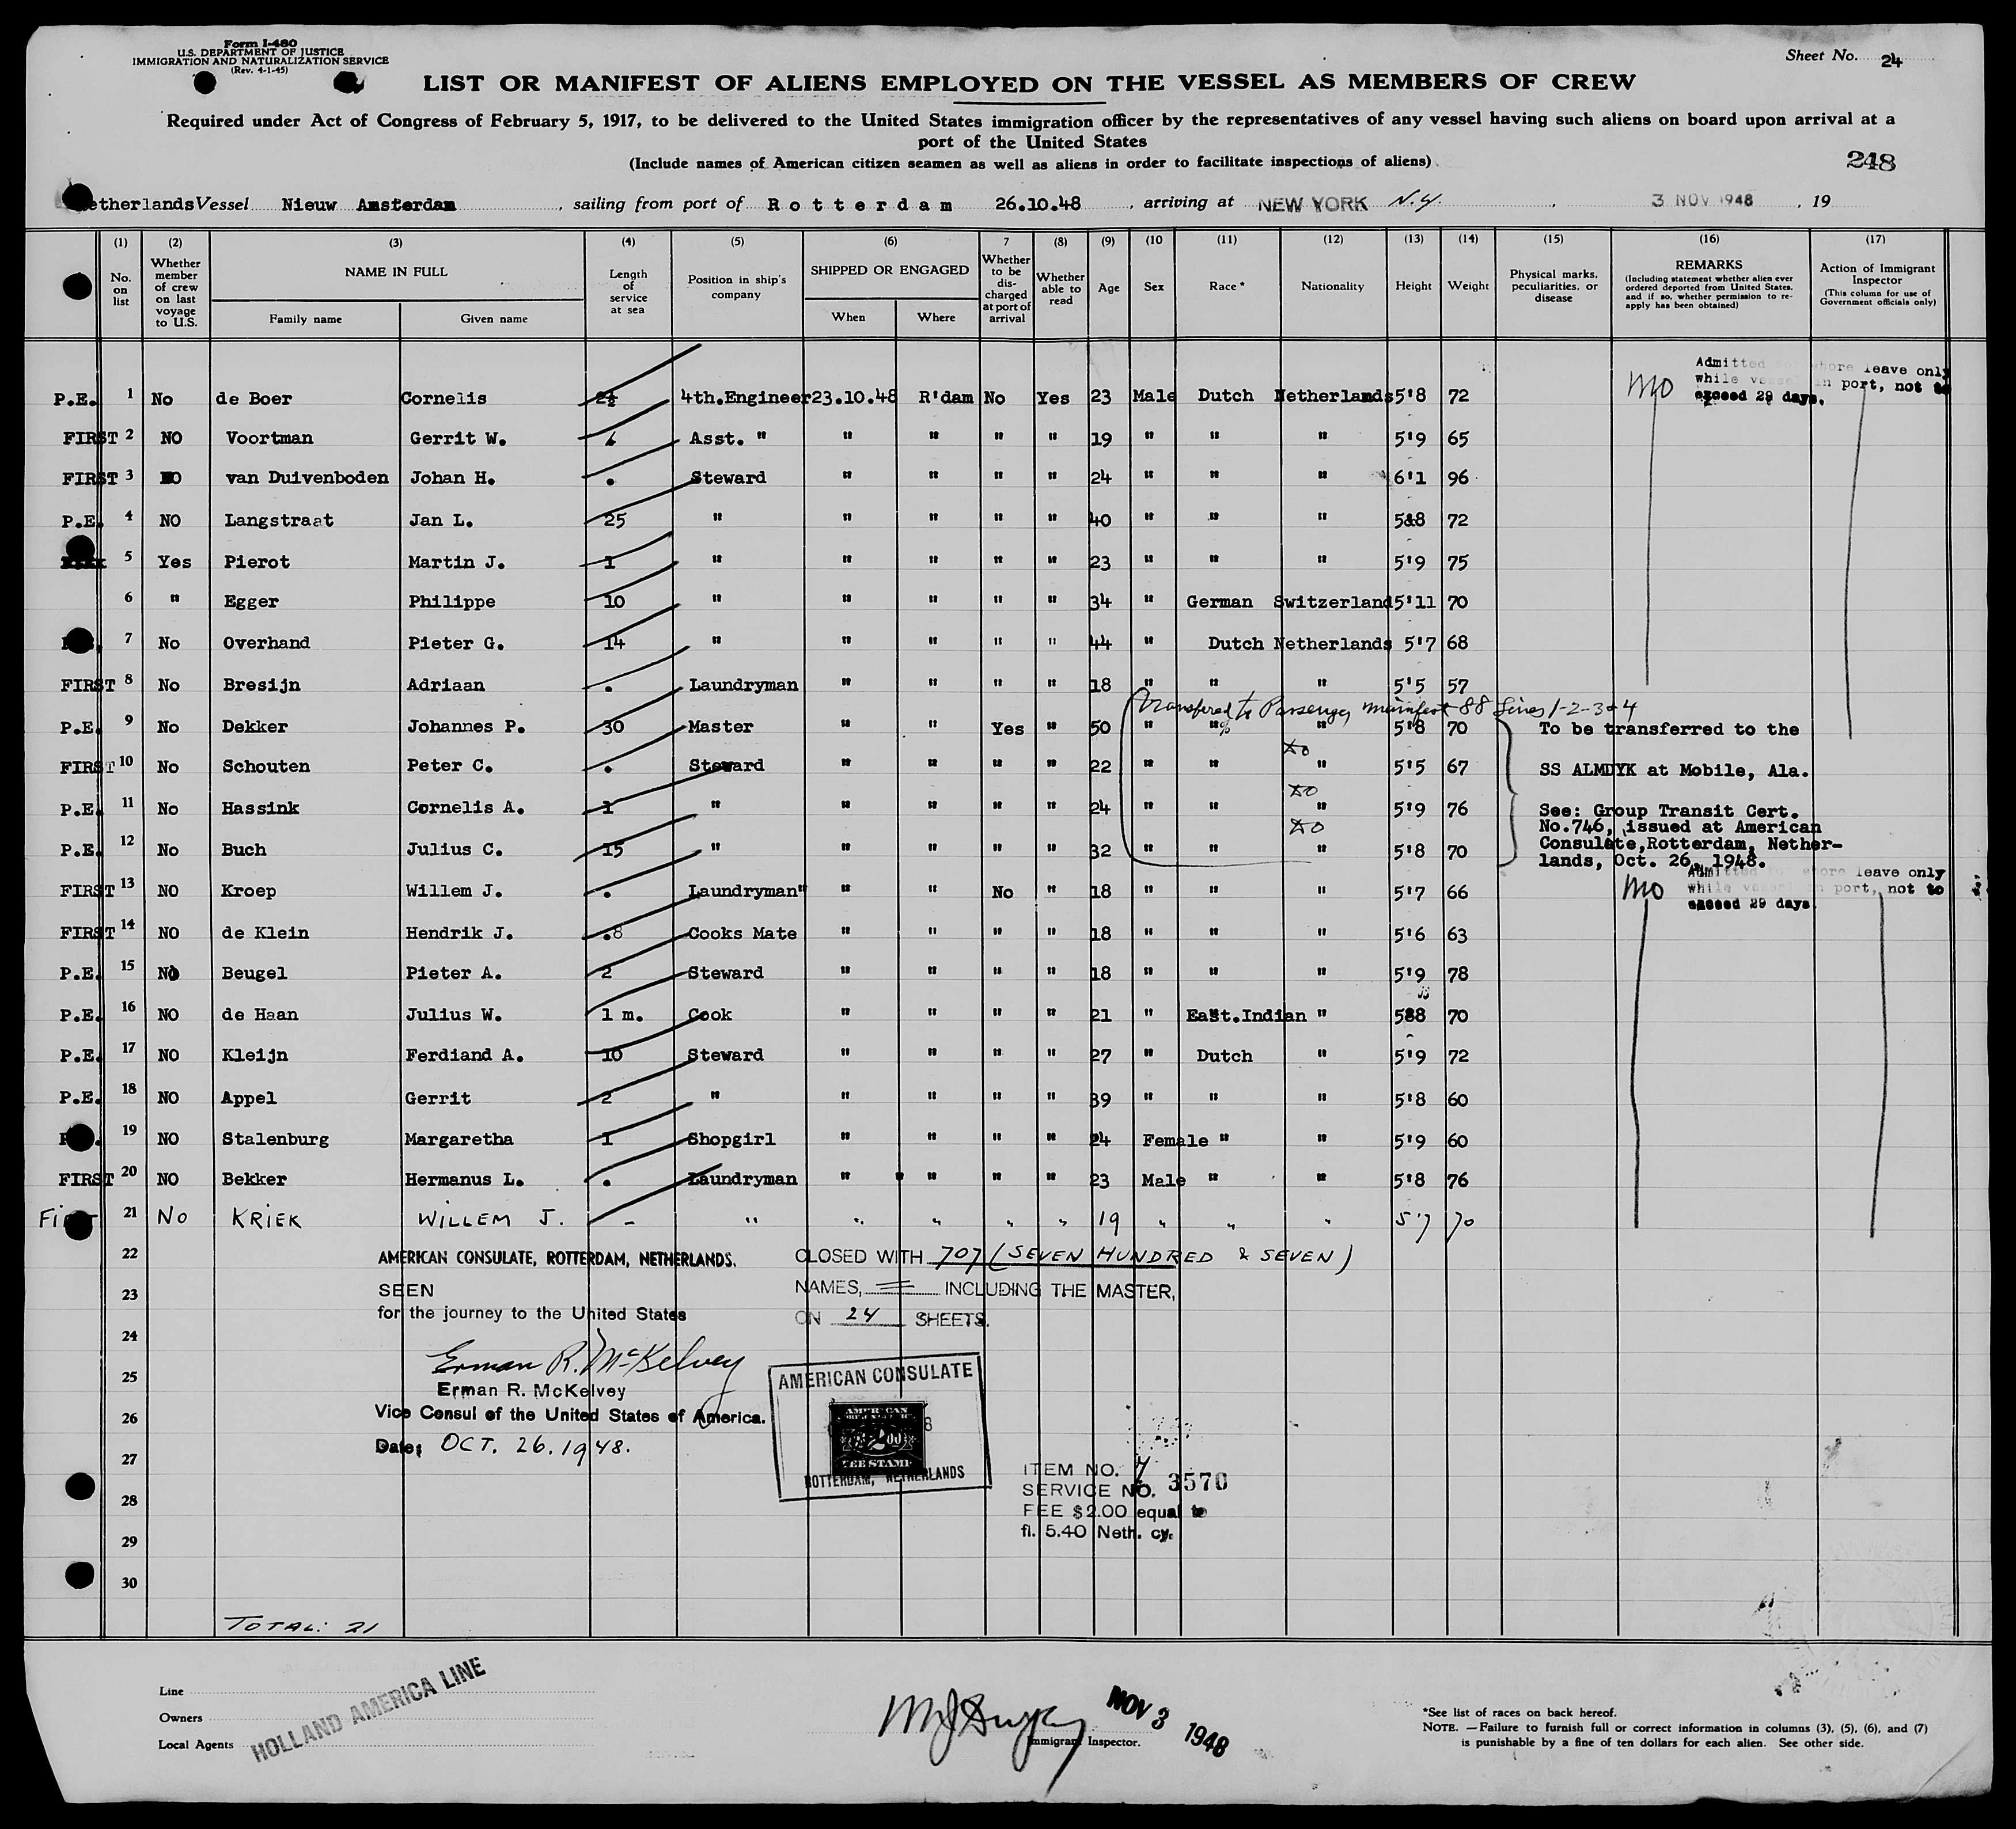 Form I-480
U.S. DEPARTMENT OF JUSTICE
IMMIGRATION AND NATURALIZATION SERVICE
(Rev. 4-1-45)
Sheet No. 24
LIST OR MANIFEST OF ALIENS EMPLOYED ON THE VESSEL AS MEMBERS OF CREW
Required under Act of Congress of February 5, 1917, to be delivered to the United States immigration officer by the representatives of any vessel having such aliens on board upon arrival at a
port of the United States
(Include names of American citizen seamen as well as aliens in order to facilitate inspections of aliens)
248
etherlands Vessel Nieuw Amsterdam, sailing from port of Rotterdam 26.10.48, arriving at NEW YORK N.Y., 3 NOV 1948, 19
(1) (2) (3) (4) (5) (6) 7 (8) (9) (10 (11) (12) (13) (14) (15) (16) (17)
No. on list
Whether member of crew on last voyage to U.S.
NAME IN FULL
Family name Given name
Length of service at sea
Position in ship's company
SHIPPED OR ENGAGED
When Where
Whether to be discharged at port of arrival
Whether able to read
Age Sex Race* Nationality Height Weight
Physical marks, peculiarities, or disease
REMARKS
(Including statement whether alien ever ordered deported from United States, and if so, whether permission to reapply has been obtained)
Action of Immigrant Inspector
(This column for use of Government officials only)
Admitted for shore leave only
while vessel in port, not to
exceed 29 days.
P.E. 1 No de Boer Cornelis 2½ 4th.Engineer 23.10.48 R'dam No Yes 23 Male Dutch Netherlands 5'8 72
FIRST 2 NO Voortman Gerrit W. Asst. " " " " " 19 " " " 5'9 65
FIRST 3 NO van Duivenboden Johan H. . Steward " " " " 24 " " " 6'1 96
P.E. 4 NO Langstraat Jan L. 25 " " " " " 40 " " " 5&8 72
5 Yes Pierot Martin J. 1 " " " " " 23 " " " 5'9 75
6 " Egger Philippe 10 " " " " " 34 " German Switzerland 5'11 70
7 No Overhand Pieter G. 14 " " " " " 44 " Dutch Netherlands 5'7 68
FIRST 8 No Bresijn Adriaan . Laundryman " " " " 18 " " " 5'5 57
Transfered to Passenger manifest 88 Lines 1-2-3&4
P.E. 9 No Dekker Johannes P. 30 Master " " Yes " 50 " " " 5'8 70 To be transferred to the
FIRST 10 No Schouten Peter C. . Steward " " " " 22 " " " 5'5 67 SS ALMDYK at Mobile, Ala.
P.E. 11 No Hassink Cornelis A. 1 " " " " " 24 " " " 5'9 76 See: Group Transit Cert.
No.746, issued at American
P.E. 12 No Buch Julius C. 15 " " " " " 32 " " " 5'8 70 Consulate,Rotterdam, Nether-
lands, Oct. 26, 1948.
Admitted for shore leave only
while vessel in port, not to
exceed 29 days.
FIRST 13 NO Kroep Willem J. . Laundryman" " " No " 18 " " " 5'7 66
FIRST 14 NO de Klein Hendrik J. .8 Cooks Mate " " " " 18 " " " 5'6 63
P.E. 15 NO Beugel Pieter A. 2 Steward " " " " 18 " " " 5'9 78
P.E. 16 NO de Haan Julius W. 1 m. Cook " " " " 21 " East.Indian " 588 70
P.E. 17 NO Kleijn Ferdiand A. 10 Steward " " " " 27 " Dutch " 5'9 72
P.E. 18 NO Appel Gerrit 2 " " " " " 39 " " " 5'8 60
19 NO Stalenburg Margaretha 1 Shopgirl " " " " 24 Female " " 5'9 60
FIRST 20 NO Bekker Hermanus L. . Laundryman " " " " 23 Male " " 5'8 76
First 21 No KRIEK WILLEM J. - " " " " " 19 " " " 5'7 70
22 AMERICAN CONSULATE, ROTTERDAM, NETHERLANDS. CLOSED WITH 707 (SEVEN HUNDRED & SEVEN)
23 SEEN NAMES, INCLUDING THE MASTER,
for the journey to the United States ON 24 SHEETS.
24
Erman R. McKelvey
25
Erman R. McKelvey
26 Vice Consul of the United States of America.
Date: OCT. 26. 1948.
AMERICAN CONSULATE
AMERICAN
$2.00
FEE STAMP
ROTTERDAM, NETHERLANDS
27
ITEM NO. 7
SERVICE NO. 3570
28
FEE $2.00 equal to
29
fl. 5.40 Neth. cy.
30
TOTAL: 21
Line
Owners
Local Agents
HOLLAND AMERICA LINE
NOV 3 1948
Immigrant Inspector.
*See list of races on back hereof.
NOTE.—Failure to furnish full or correct information in columns (3), (5), (6), and (7)
is punishable by a fine of ten dollars for each alien. See other side.